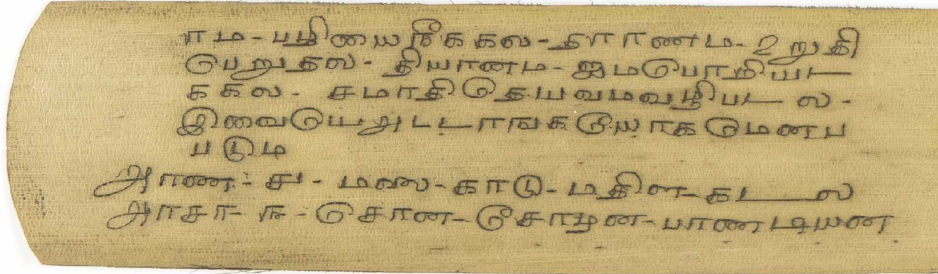 ரம - பழியைநீககல - தாரணம - உறுதி
பெறுதல - தியானம - ஐமபொறியட
ககல - சமாதிதெயவமவழிபடல -
இவையெஅடடாஙகயோகமெனப
படும
அரண - ௪ - மலை - காடு - மதிள - கடல
அரசர - ௩ - செரன - சோழன - பாணடியன